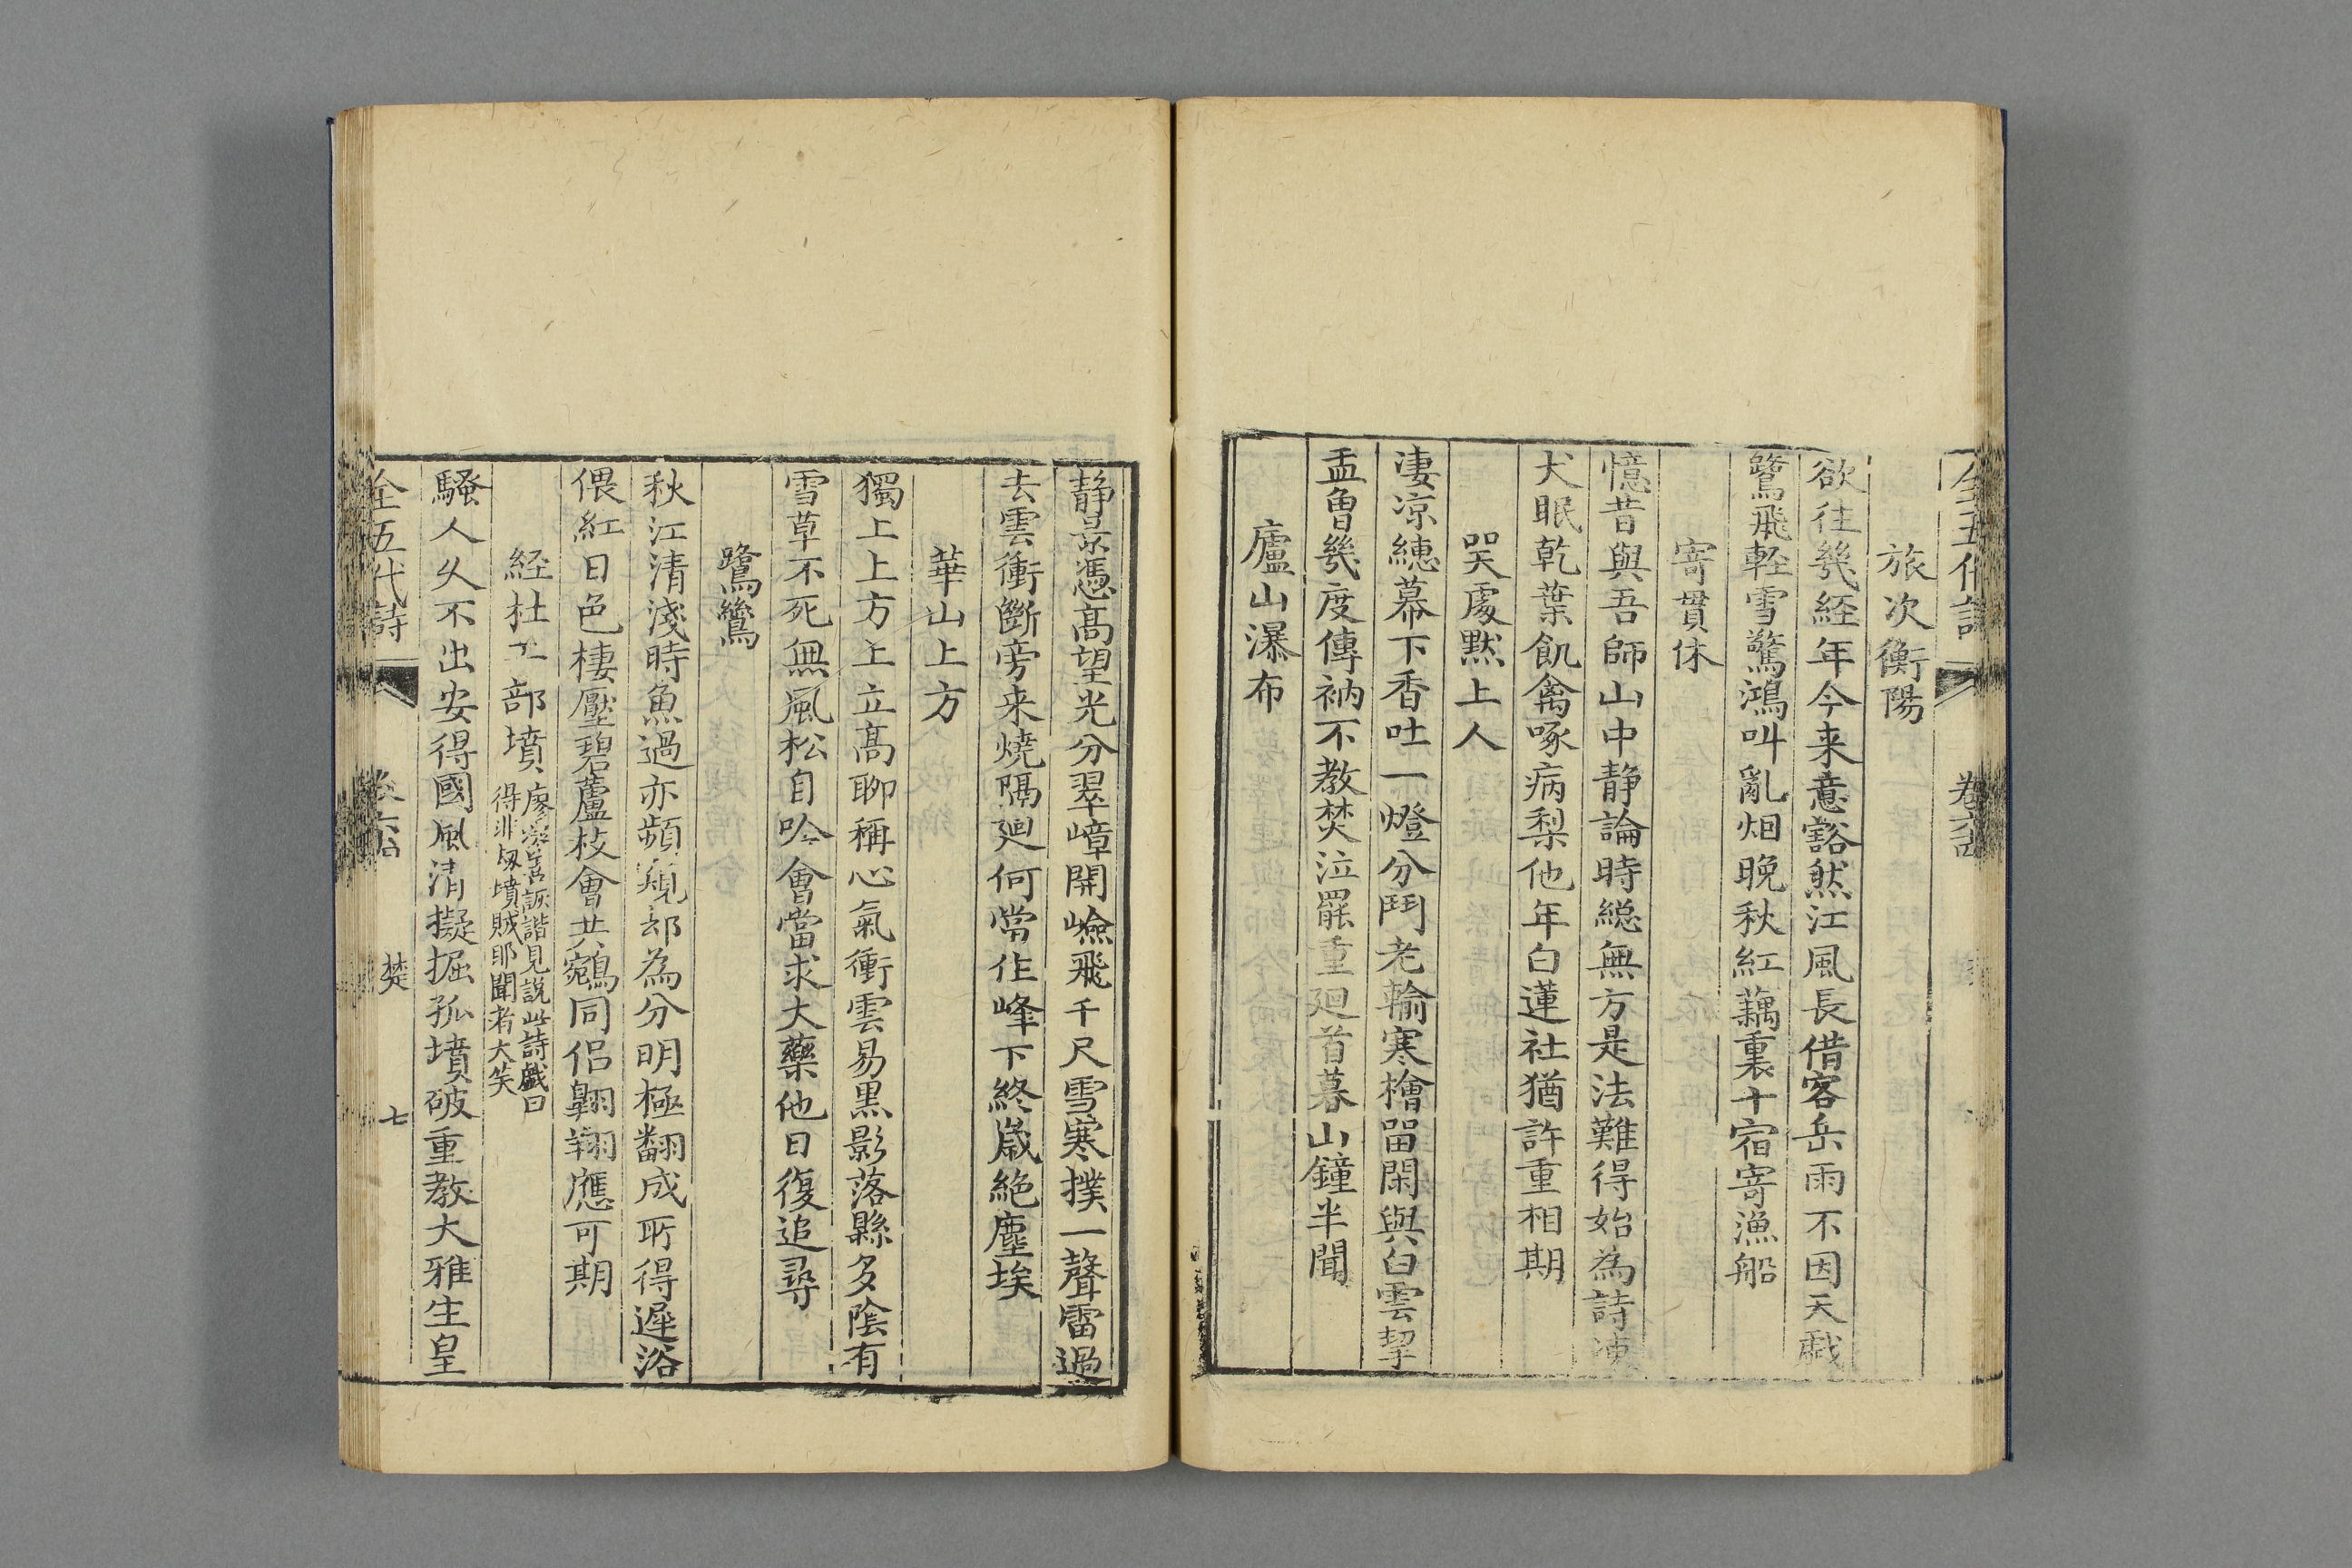 全五代詩 卷六 楚
旅次衡陽
欲往幾経年今来意豁然江風長借客岳雨不因天戲
鷺飛軽雪驚鴻叫亂烟晩秋紅藕裏十宿寄漁船
寄貫休
憶昔與吾師山中静論時総無方是法難得始為詩凍
犬眠乾葉飢禽啄病梨他年白蓮社猶許重相期
哭處黙上人
凄凉繐幕下香吐一燈分鬥老輸寒檜留閑與白雲挈
盂曽幾度傳衲不教焚泣罷重廻首暮山鐘半聞
廬山瀑布
静景憑髙望光分翠嶂開嶮飛千尺雪寒撲一聲雷過
去雲衝斷旁来燒隔廻何當住峰下終嵗絶塵埃
華山上方
獨上上方上立髙聊稱心氣衝雲易黒影落縣多陰有
雪草不死無風松自吟會當求大藥他日復追尋
鷺鷥
秋江清淺時魚過亦頻窺却為分明極翻成所得遲浴
偎紅日色棲壓碧蘆枝會共鵷同侣翺翔應可期
経杜工部墳 廖凝善詼諧見説此詩戯曰
得非刼墳賊耶聞者大笑
騷人久不出安得國風清擬掘孤墳破重教大雅生皇
全五代詩 卷六 楚 七